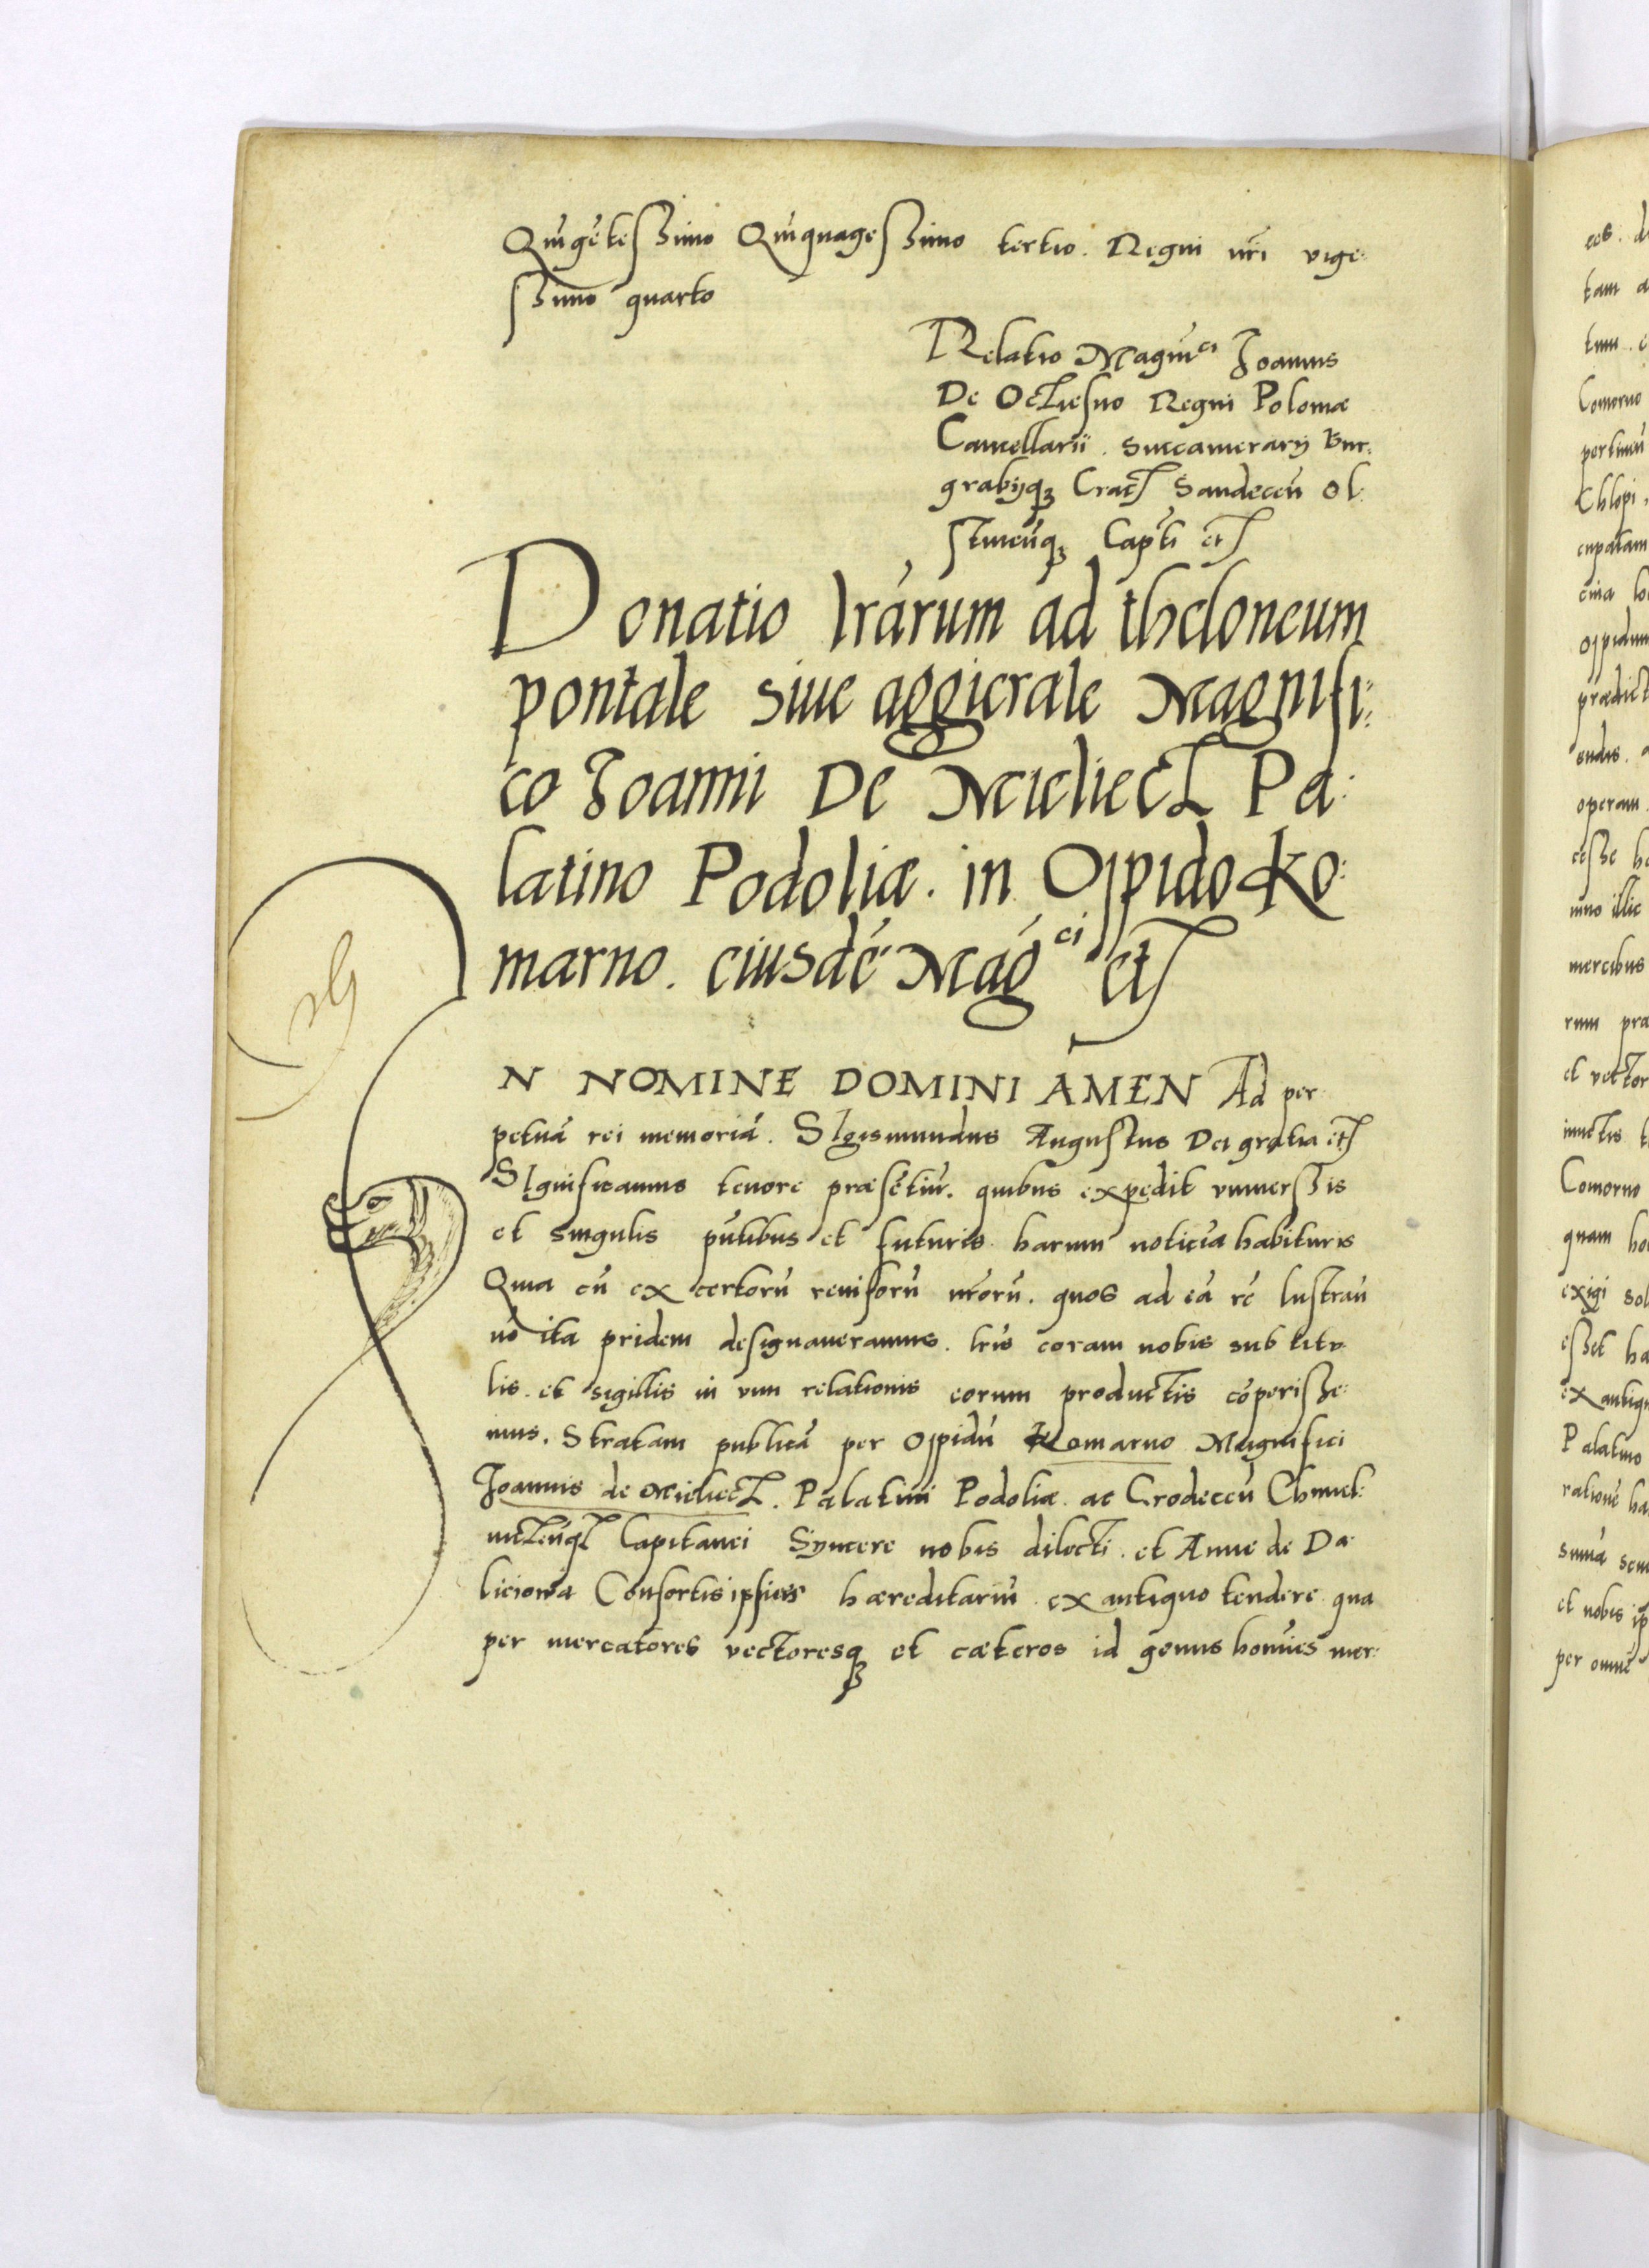 Quīgētessimo Quīquagessimo tertio. Regni nr̄i vige:
ssimo quarto
Relatio Magnici Joannis
De Octiesno Regni Poloniæ
Cancellarii. Succamerarij Bur:
grabijq3 Crac Sandeceń Ol:
stineńq3 Capti etc
Donatio lrarum ad theloneum
pontale siue aggierale Magnifi:
co Joanni De Mieliecz Pa:
latino Podoliæ. in Oppido Ko:
marno. eiusdē Magci etc
N NOMINE DOMINI AMEN Ad per:
petuā rei memoriā. SIgismundus Augustus Dei gratia etc
SIgnificamus tenore præsētiū. quibus expedit vniuersis
et singulis pūtibus et futuris harum noticiā habituris
Quia cū ex certorū reuisorū nr̄orū. quos ad eā rē lustrań
nō ita pridem designaueramus. lris coram nobis sub titu:
lis. et sigillis in vim relationis eorum productis cōperisse:
mus. Stratam publicā per Oppidū Komarno Magnifici
Joannis de Mieliecz. Palatini Podoliæ ac Grodeceń Chmiel:
niceńq Capitanei Syncere nobis dilecti. et Annæ de Da:
liciowa Consortis ipsius hæreditariū ex antiquo tendere qua
per mercatores vectoresq3 et cæteros id genus homīes mer:
ces. d
tam a
tum. c
Comorno
pertineń
Chlopi.
cupatam
cina lo
Oppidum
prædict
endis. a
operam
cesse ha
imo illic
mercibus
rum præ
et vector
iunctis t
Comorno
quam ho
exigi sol
esset ha
ex antiqu
Palatino
rationē ha
sumā seu
et nobis ip
per omnē